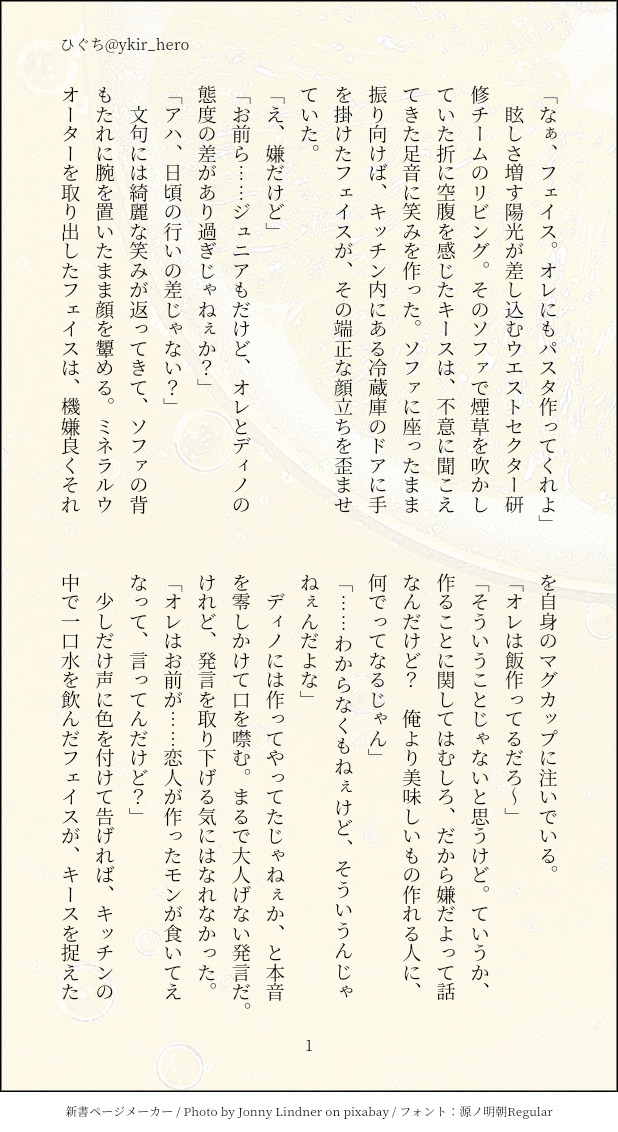 ひぐち@ykir_hero
「なぁ、フェイス。オレにもパスタ作ってくれよ」
　眩しさ増す陽光が差し込むウエストセクター研
修チームのリビング。そのソファで煙草を吹かし
ていた折に空腹を感じたキースは、不意に聞こえ
てきた足音に笑みを作った。ソファに座ったまま
振り向けば、キッチン内にある冷蔵庫のドアに手
を掛けたフェイスが、その端正な顔立ちを歪ませ
ていた。
「え、嫌だけど」
「お前ら……ジュニアもだけど、オレとディノの
態度の差があり過ぎじゃねぇか？」
「アハ、日頃の行いの差じゃない？」
　文句には綺麗な笑みが返ってきて、ソファの背
もたれに腕を置いたまま顔を顰める。ミネラルウ
オーターを取り出したフェイスは、機嫌良くそれ
を自身のマグカップに注いでいる。
「オレは飯作ってるだろ〜」
「そういうことじゃないと思うけど。ていうか、
作ることに関してはむしろ、だから嫌だよって話
なんだけど？　俺より美味しいもの作れる人に、
何でってなるじゃん」
「……わからなくもねぇけど、そういうんじゃ
ねぇんだよな」
　ディノには作ってやってたじゃねぇか、と本音
を零しかけて口を噤む。まるで大人げない発言だ。
けれど、発言を取り下げる気にはなれなかった。
「オレはお前が……恋人が作ったモンが食いてえ
なって、言ってんだけど？」
　少しだけ声に色を付けて告げれば、キッチンの
中で一口水を飲んだフェイスが、キースを捉えた
1
新書ページメーカー / Photo by Jonny Lindner on pixabay / フォント：源ノ明朝Regular